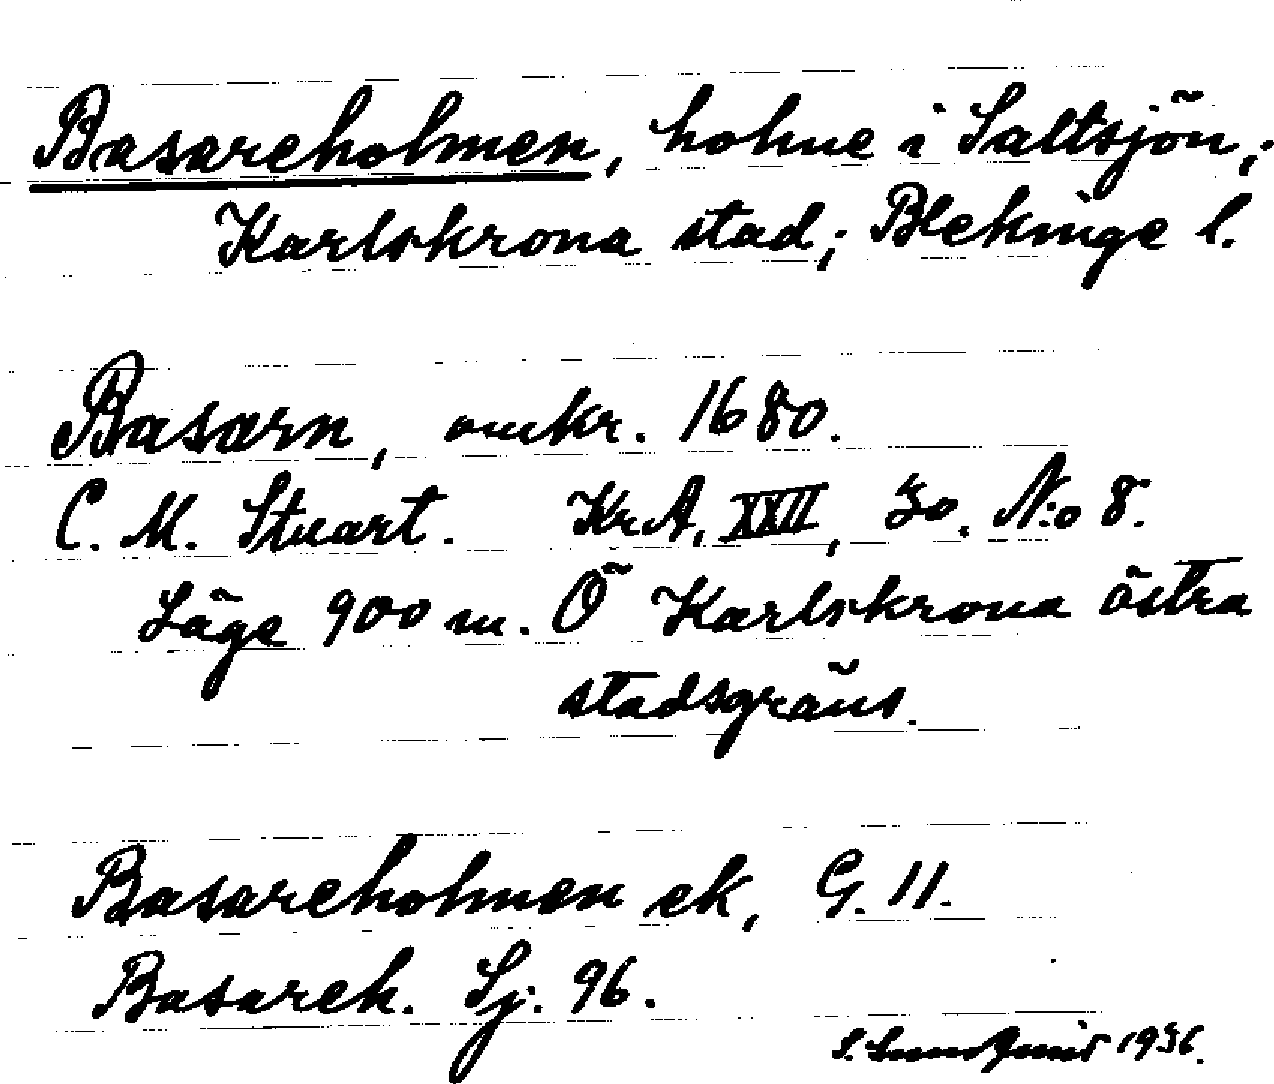 Basareholmen, holme i Saltsjön,;
Karlskrona stad; Blekinge l.
Basarn, omkr. 1680.
C. M. Stuart. KrA, XXII, Bo. N:o 8.
Läge 900 m. Ö Karlskrona östra
stadsgräns.
Basareholmen ek, G. 11.
Basareh. Sj. 96.
S. 1936.